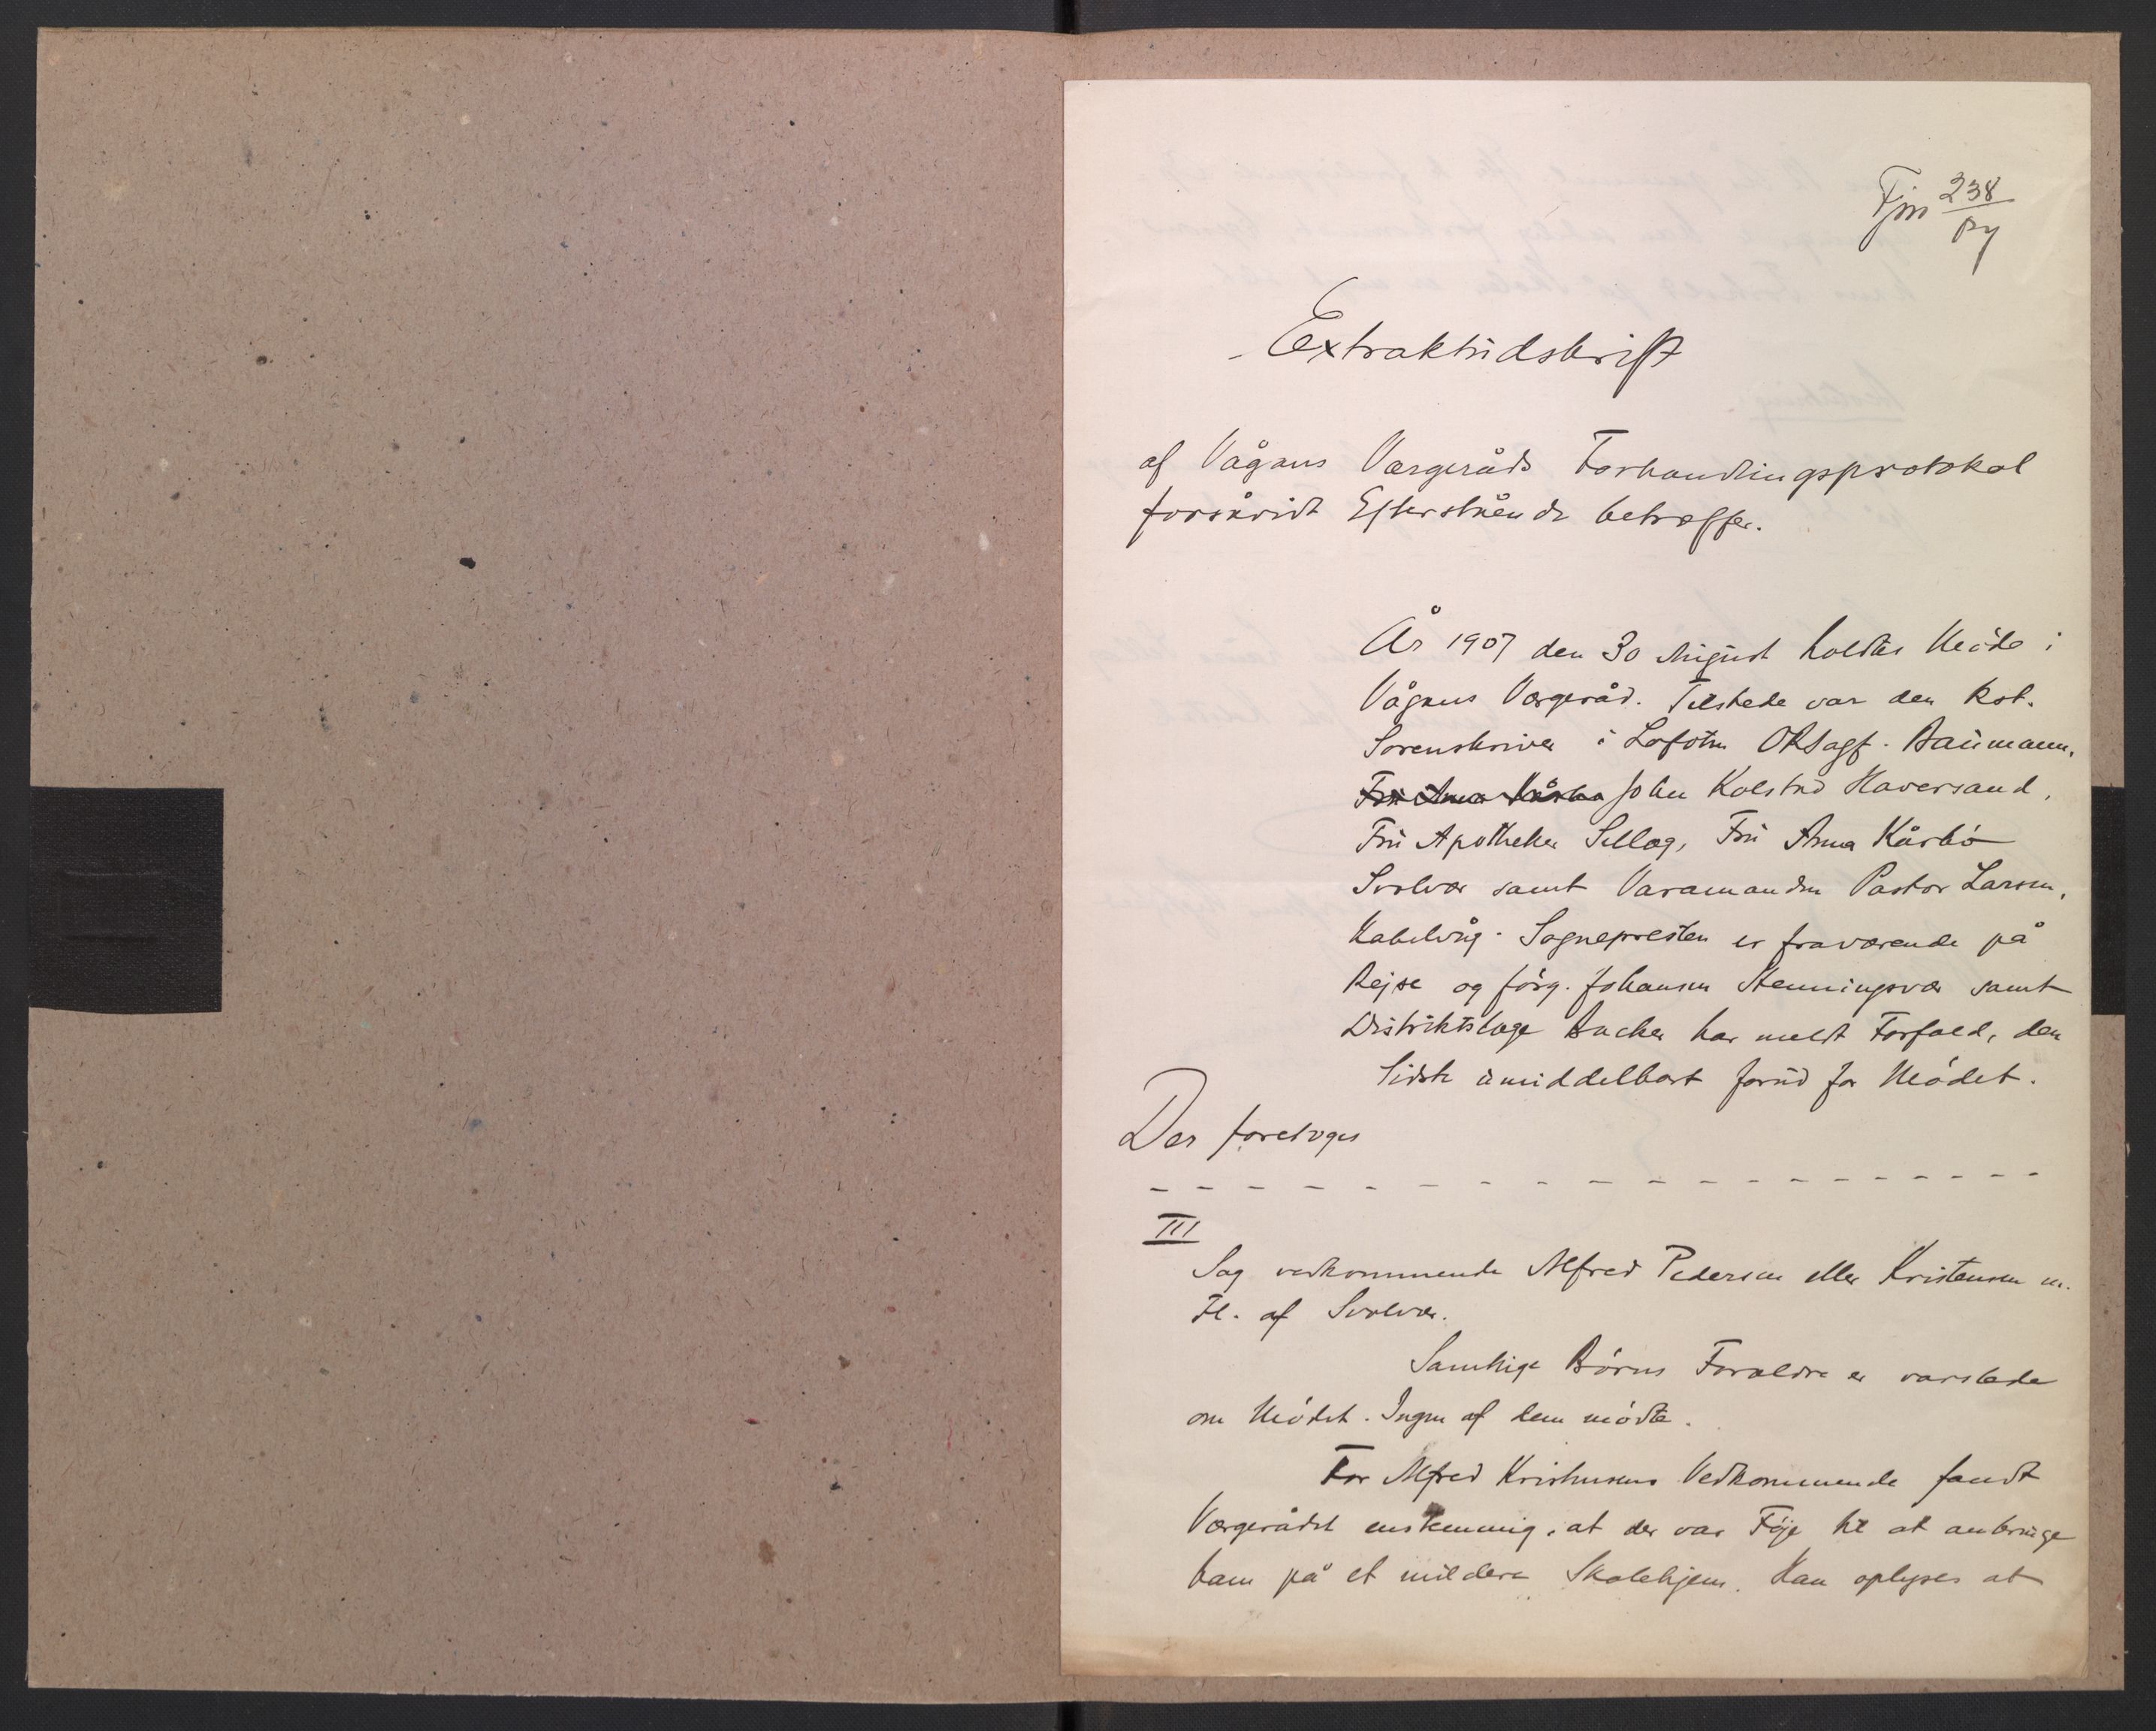 Fjm 238/07
Extraktudskrift
af Vågans Værgeråds Forhandlingsprotokol
forsåvidt Efterstående betræffer.
År 1907 den 30 August holdtes Møde i
Vågans Værgeråd. Tilstede var den kst.
Sorenskriver i Lofoten ORsagf. Baumann,
Fru Anna Kårbø John Kolstad Haversand,
Fru Apotheker Selleg, Fru Anna Kårbø
Svolvær samt Varamanden Pastor Larsen,
Kabelvåg. Sognepresten er fraværende på
Rejse og Jörg. Johansen Henningsvær samt
Distriktslæge Bucher har meldt Forfald, den
Sidste umiddelbart forud for Mödet.
Der foretoges
III
Sag vedkommende Alfred Pedersen eller Kristensen m.
Fl. af Svolvær.
Samtlige Börns Forældre er varslede
om Mödet. Ingen af dem mödte.
For Alfred Kristensens Vedkommende fandt
Værgerådet enstemmig, at der var Föje til at anbringe
ham på et mildere Skolehjem. Han oplyses at